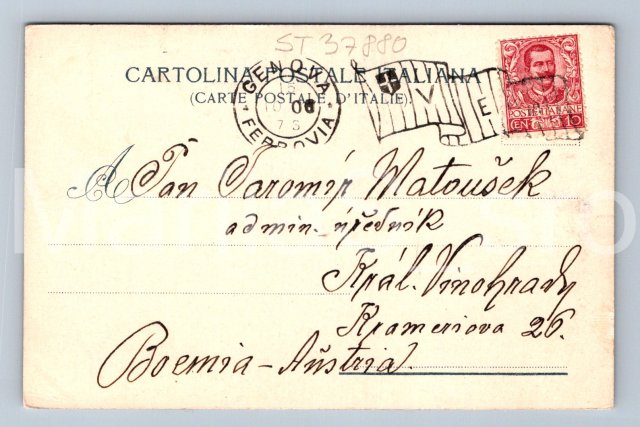 ST 37880
CARTOLINA POSTALE ITALIANA
(CARTE POSTALE D'ITALIE).
GENOVA
06
FERROVIA
V E
POSTE ITALIANE
CENT. 10
A Pan Jaromír Matoušek
admin. úředník
Král. Vinohrady
Krameriova 26.
Boemia - Aŭstria.